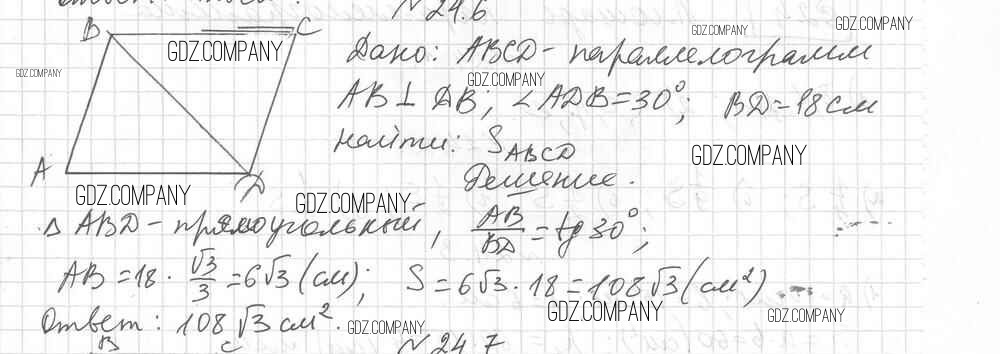 № 24.6
B C
Дано: ABCD - параллелограмм
AB ⊥ DB; ∠ADB = 30°; BD = 18 см
Найти: S ABCD
A D
Решение.
Δ ABD - прямоугольный, AB/BD = tg 30°;
AB = 18 · √3/3 = 6√3 (см); S = 6√3 · 18 = 108√3 (см²)
Ответ: 108√3 см².
B C № 24.7
GDZ.COMPANY
GDZ.COMPANY
GDZ.COMPANY
GDZ.COMPANY
GDZ.COMPANY
GDZ.COMPANY
GDZ.COMPANY
GDZ.COMPANY
GDZ.COMPANY
GDZ.COMPANY
GDZ.COMPANY